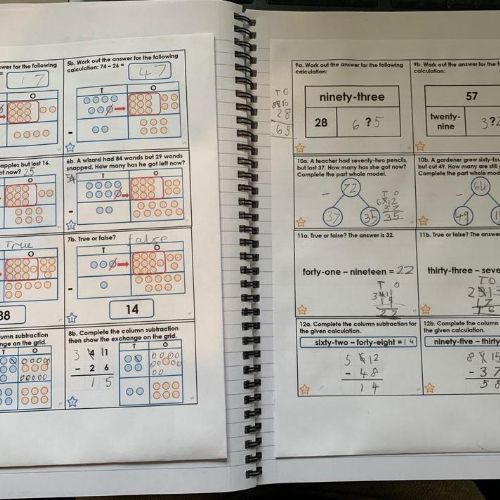 wer for the following
17
5b. Work out the answer for the following
calculation: 74 – 26 =
47
T O
apples but lost 16.
ot now? 25
6b. A wizard had 84 wands but 29 wands
snapped. How many has he got left now?
T O
True
38
7b. True or false? false
14
umn subtraction
ange on the grid.
T O
8b. Complete the column subtraction
then show the exchange on the grid.
3 4 11
- 2 6
1 5
T O
9a. Work out the answer for the following
calculation:
T O
28
65
ninety-three
28
6 ? 5
9b. Work out the answer for the
calculation:
57
twenty-
nine
3?2
10a. A teacher had seventy-two pencils,
but lost 37. How many has she got now?
Complete the part whole model.
72
37
35
T O
35
10b. A gardener grew sixty-four
but cut 49. How many are still
Complete the part whole model.
64
49
11a. True or false? The answer is 32.
forty-one – nineteen = 22
T O
3 4 11
1 9
2 2
11b. True or false? The answer
thirty-three – seve
T O
1 6
12a. Complete the column subtraction for
the given calculation.
sixty-two – forty-eight = 14
5 6 12
- 4 8
1 4
12b. Complete the column
the given calculation.
ninety-five – thirty
- 3 7
5 8